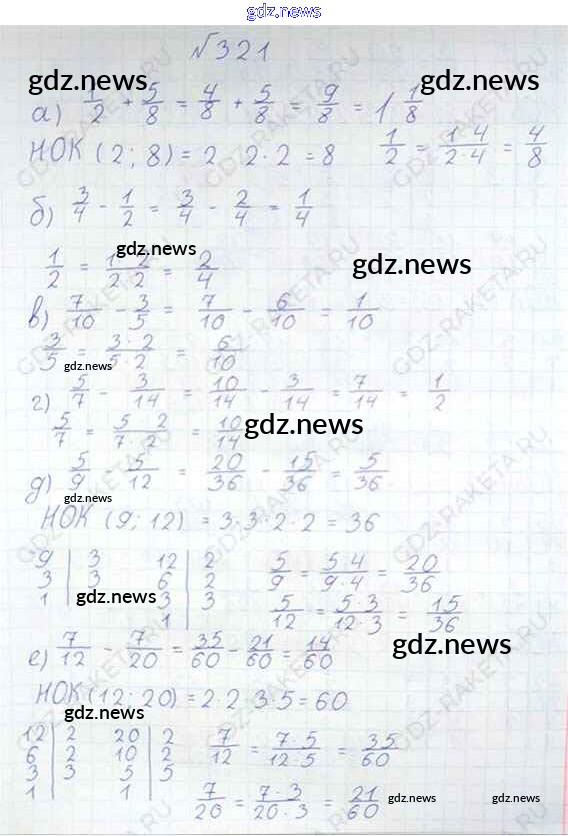 gdz.news
№321
gdz.news gdz.news
а) 1/2 + 5/8 = 4/8 + 5/8 = 9/8 = 1 1/8
НОК (2; 8) = 2 2·2 = 8 1/2 = 1·4/2·4 = 4/8
б) 3/4 - 1/2 = 3/4 - 2/4 = 1/4
gdz.news gdz.news
1/2 = 1·2/2·2 = 2/4
в) 7/10 - 3/5 = 7/10 - 6/10 = 1/10
3/5 = 3·2/5·2 = 6/10
gdz.news
г) 5/7 - 3/14 = 10/14 - 3/14 = 7/14 = 1/2
5/7 = 5·2/7·2 = 10/14
gdz.news
д) 5/9 - 5/12 = 20/36 - 15/36 = 5/36
gdz.news
НОК (9; 12) = 3·3·2·2 = 36
9 | 3 12 | 2 5/9 = 5·4/9·4 = 20/36
3 | 3 6 | 2
1 | 3 | 3 5/12 = 5·3/12·3 = 15/36
1
gdz.news
е) 7/12 - 7/20 = 35/60 - 21/60 = 14/60
gdz.news
НОК (12; 20) = 2·2 3·5 = 60
gdz.news
12 | 2 20 | 2 7/12 = 7·5/12·5 = 35/60
6 | 2 10 | 2
3 | 3 5 | 5
1 | 1 | 7/20 = 7·3/20·3 = 21/60
gdz.news gdz.news
GDZ-RAKETA.RU